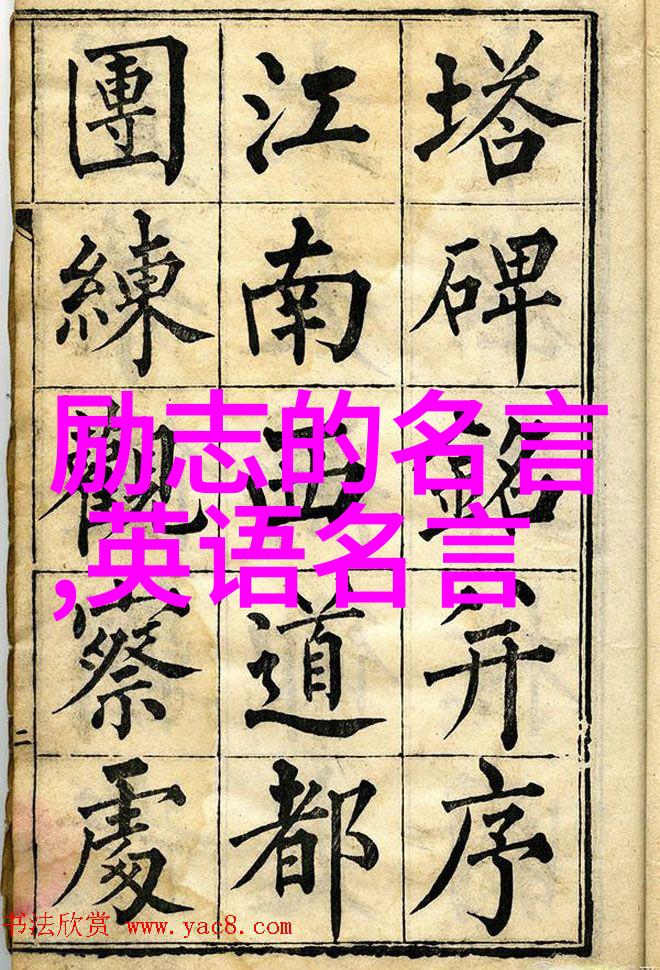 塔碑銘并序
江南西道都
團練觀察處
二
励志的名言
,英语名言
书法欣赏 www.yac8.com